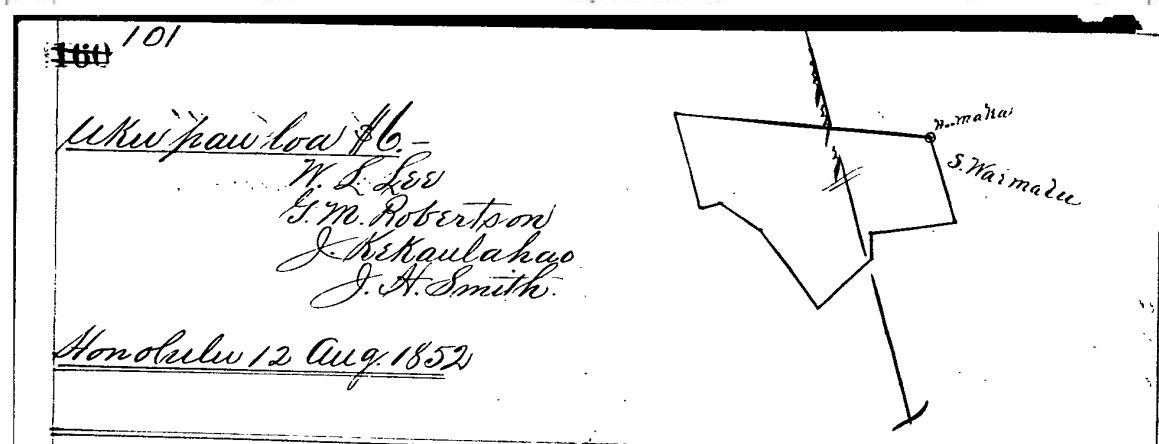 101
160
Uku pau loa $6.–
W. L. Lee
G. M. Robertson
J. Kekaulahao
J. H. Smith.
Honolulu 12 Aug. 1852
H..maka
S. Waimalu